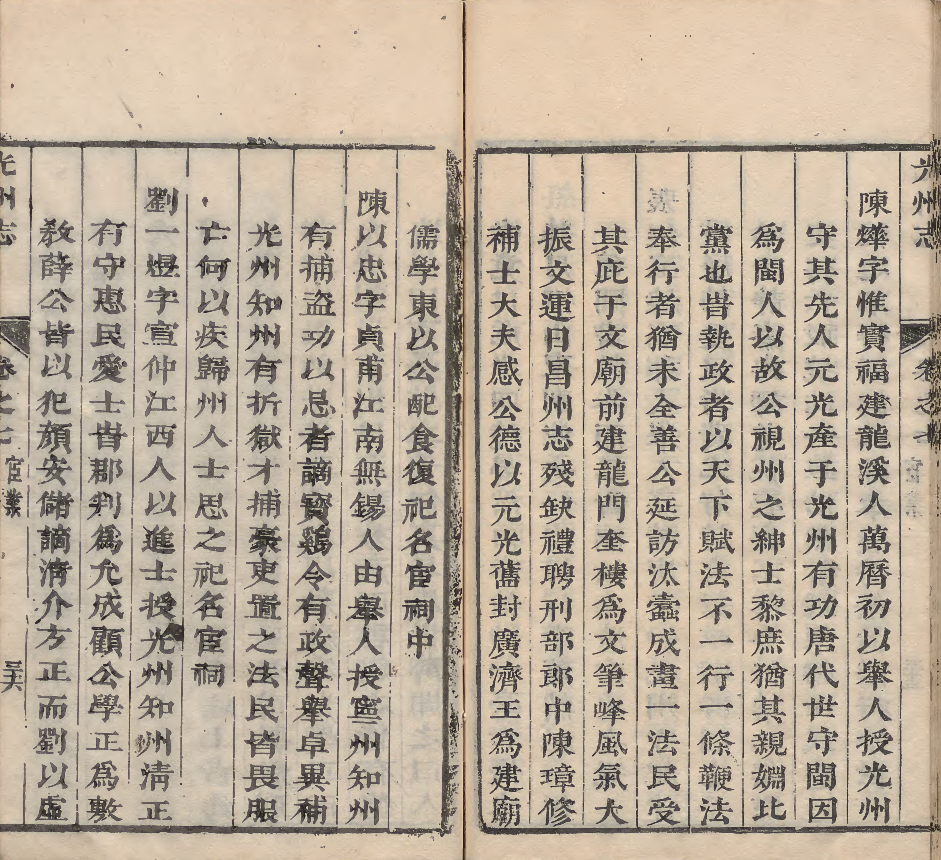 光州志 卷之七 宦業
陳燁字惟實福建龍溪人萬曆初以舉人授光州
守其先人元光產于光州有功唐代世守閩因
為閩人以故公視州之紳士黎庶猶其親婣比
黨也旹執政者以天下賦法不一行一條鞭法
奉行者猶未全善公延訪汰蠹成畫一法民受
其庇于文廟前建龍門奎樓為文筆峰風氣大
振文運日昌州志殘缺禮聘刑部郎中陳璋修
補士大夫感公德以元光舊封廣濟王為建廟
儒學東以公配食復祀名宦祠中
陳以忠字貞甫江南無錫人由舉人授寧州知州
有捕盜功以忌者謫寶鷄令有政聲舉卓異補
光州知州有折獄才捕豪吏置之法民皆畏服
亡何以疾歸州人士思之祀名宦祠
劉一煜字宣仲江西人以進士授光州知州清正
有守惠民愛士旹郡判為允成顧公學正為敷
教薛公皆以犯顏安儲謫清介方正而劉以虛
光州志 卷之七 宦業 吴